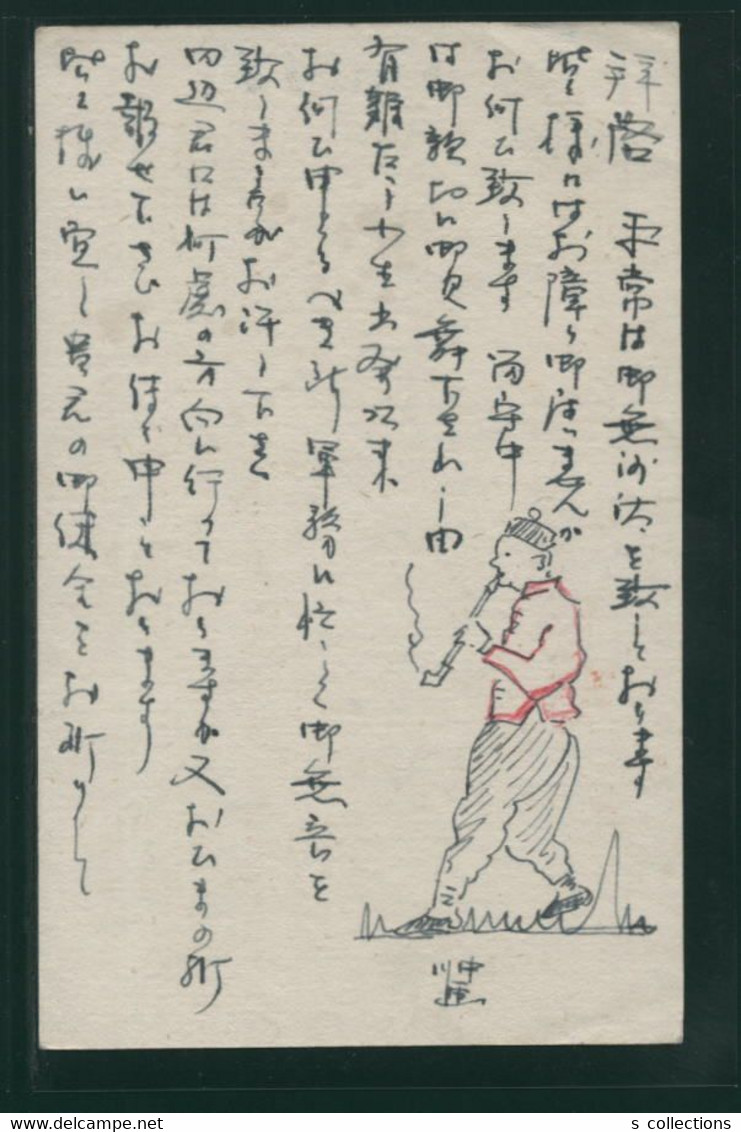 拝啓 平常は御無沙汰を致しております
皆々様にはお障り御座いませんか
お伺い致します 留守中
は御親切に御見舞下され由
有難たう 小生出発以来
お伺ひ申上るべき所軍務に忙しく御無音を
致しましたがお許し下さい
田辺君には何処の方向に行っておりますか又おひまの所
お報せ下さいお待ち申しております
皆々様に宜しく 貴兄の御健全をお祈りして
s collections